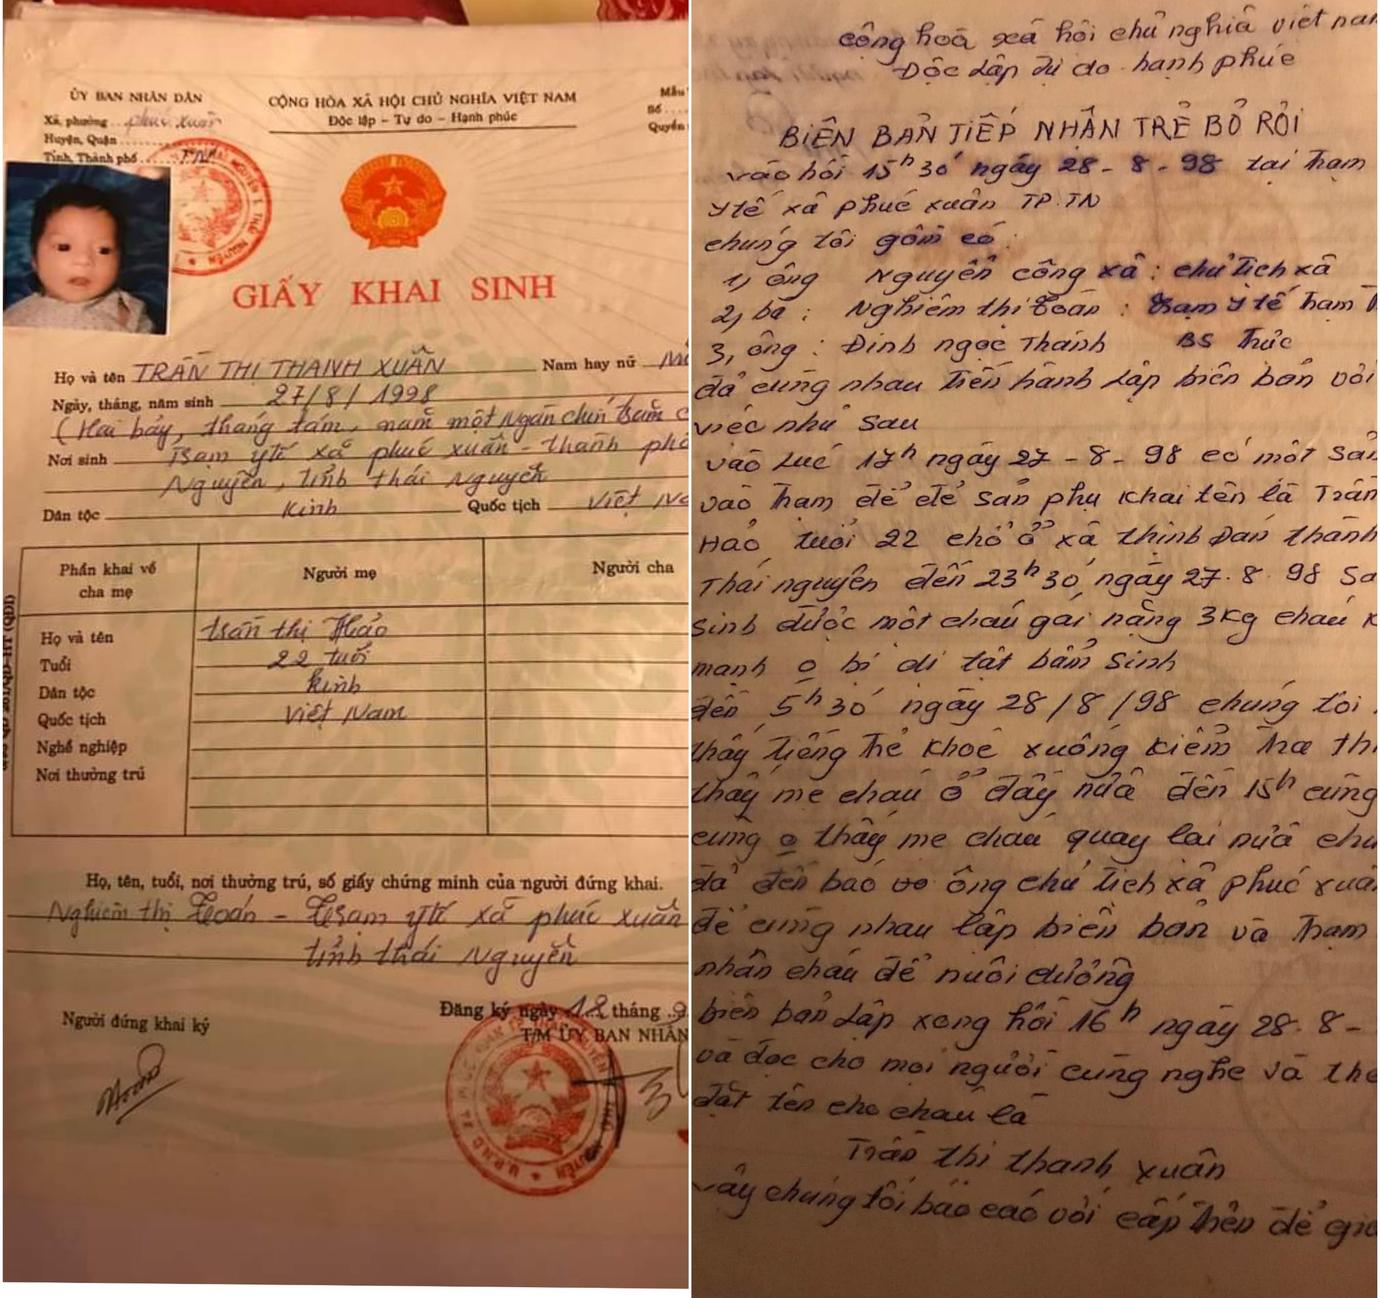 ỦY BAN NHÂN DÂN
Xã, phường phúc xuân
Huyện, Quận
Tỉnh, Thành phố TN
CỘNG HÒA XÃ HỘI CHỦ NGHĨA VIỆT NAM
Độc lập - Tự do - Hạnh phúc
Mẫu
Số
Quyển
GIẤY KHAI SINH
Họ và tên TRẦN THỊ THANH XUÂN Nam hay nữ
Ngày, tháng, năm sinh 27/8/1998
(Hai bảy, tháng tám, năm một ngàn chín trăm
Nơi sinh Trạm ytế xã phúc xuân - thành phố
Nguyên, tỉnh thái Nguyên
Dân tộc Kinh Quốc tịch Việt
Phần khai về cha mẹ Người mẹ Người cha
Họ và tên trần thị Hảo
Tuổi 22 tuổi
Dân tộc kinh
Quốc tịch Việt Nam
Nghề nghiệp
Nơi thường trú
Họ, tên, tuổi, nơi thường trú, số giấy chứng minh của người đứng khai.
Nghiêm thị Toán - Trạm ytế xã phúc xuân
tỉnh thái Nguyên
Người đứng khai ký
Đăng ký ngày 18 tháng 9
T/M ỦY BAN NHÂN
cộng hoà xã hôi chủ nghiã việt nam
Độc lập tự do hạnh phúc
BIÊN BẢN TIẾP NHẬN TRẺ BỎ RƠI
vào hồi 15h30 ngày 28-8-98 tại trạm
y tế xã phúc xuân TP.TN
chúng tôi gồm có:
1, ông Nguyễn công xã: chủ tịch xã
2, bà: Nghiêm thị Toán: trạm y tế trạm
3, ông: Đinh ngọc Thành BS trực
đã cùng nhau tiến hành lập biên bản với
việc như sau
vào lúc 17h ngày 27-8-98 có một sản
vào trạm để đẻ sản phụ khai tên là Trần
Hảo tuổi 22 chỗ ở xã thịnh Đán thành
Thái nguyên đến 23h30 ngày 27.8.98
sinh được một cháu gái nặng 3kg cháu
mạnh o bị dị tật bẩm sinh
đến 5h30 ngày 28/8/98 chúng tôi
thấy tiếng trẻ khóc xuống kiểm tra
thấy mẹ cháu ở đây nữa đến 15h cũng
cũng o thấy mẹ cháu quay lại nữa
đã đến báo ông chủ tịch xã phúc xuân
để cùng nhau lập biên bản và trạm
nhận cháu để nuôi dưỡng
biên bản lập xong hồi 16h ngày 28.8-
và đọc cho mọi người cùng nghe và
đặt tên cho cháu là
Trần thị thanh xuân
vậy chúng tôi báo cáo với cấp trên để